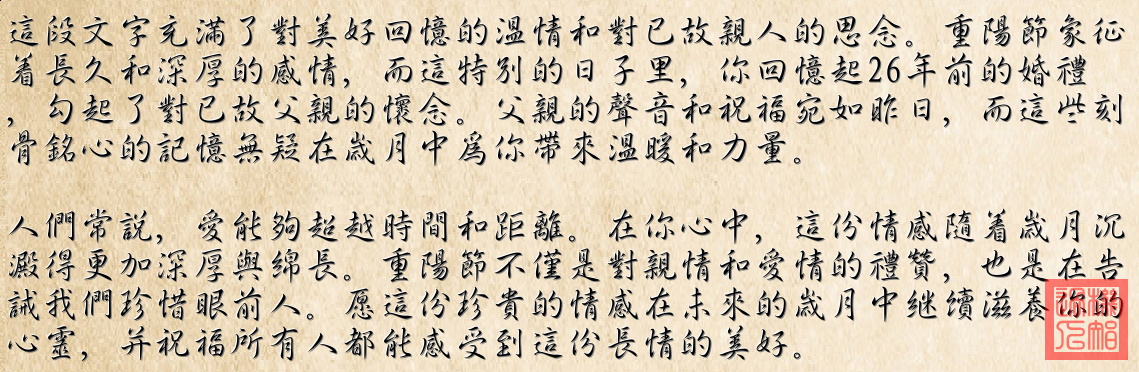 這段文字充滿了對美好回憶的溫情和對已故親人的思念。重陽節象征
着長久和深厚的感情，而這特別的日子里，你回憶起26年前的婚禮
，勾起了對已故父親的懷念。父親的聲音和祝福宛如昨日，而這些刻
骨銘心的記憶無疑在歲月中爲你帶來溫暖和力量。
人們常説，愛能夠超越時間和距離。在你心中，這份情感隨着歲月沉
澱得更加深厚與綿長。重陽節不僅是對親情和愛情的禮贊，也是在告
誡我們珍惜眼前人。愿這份珍貴的情感在未來的歲月中继續滋養你的
心靈，并祝福所有人都能感受到這份長情的美好。